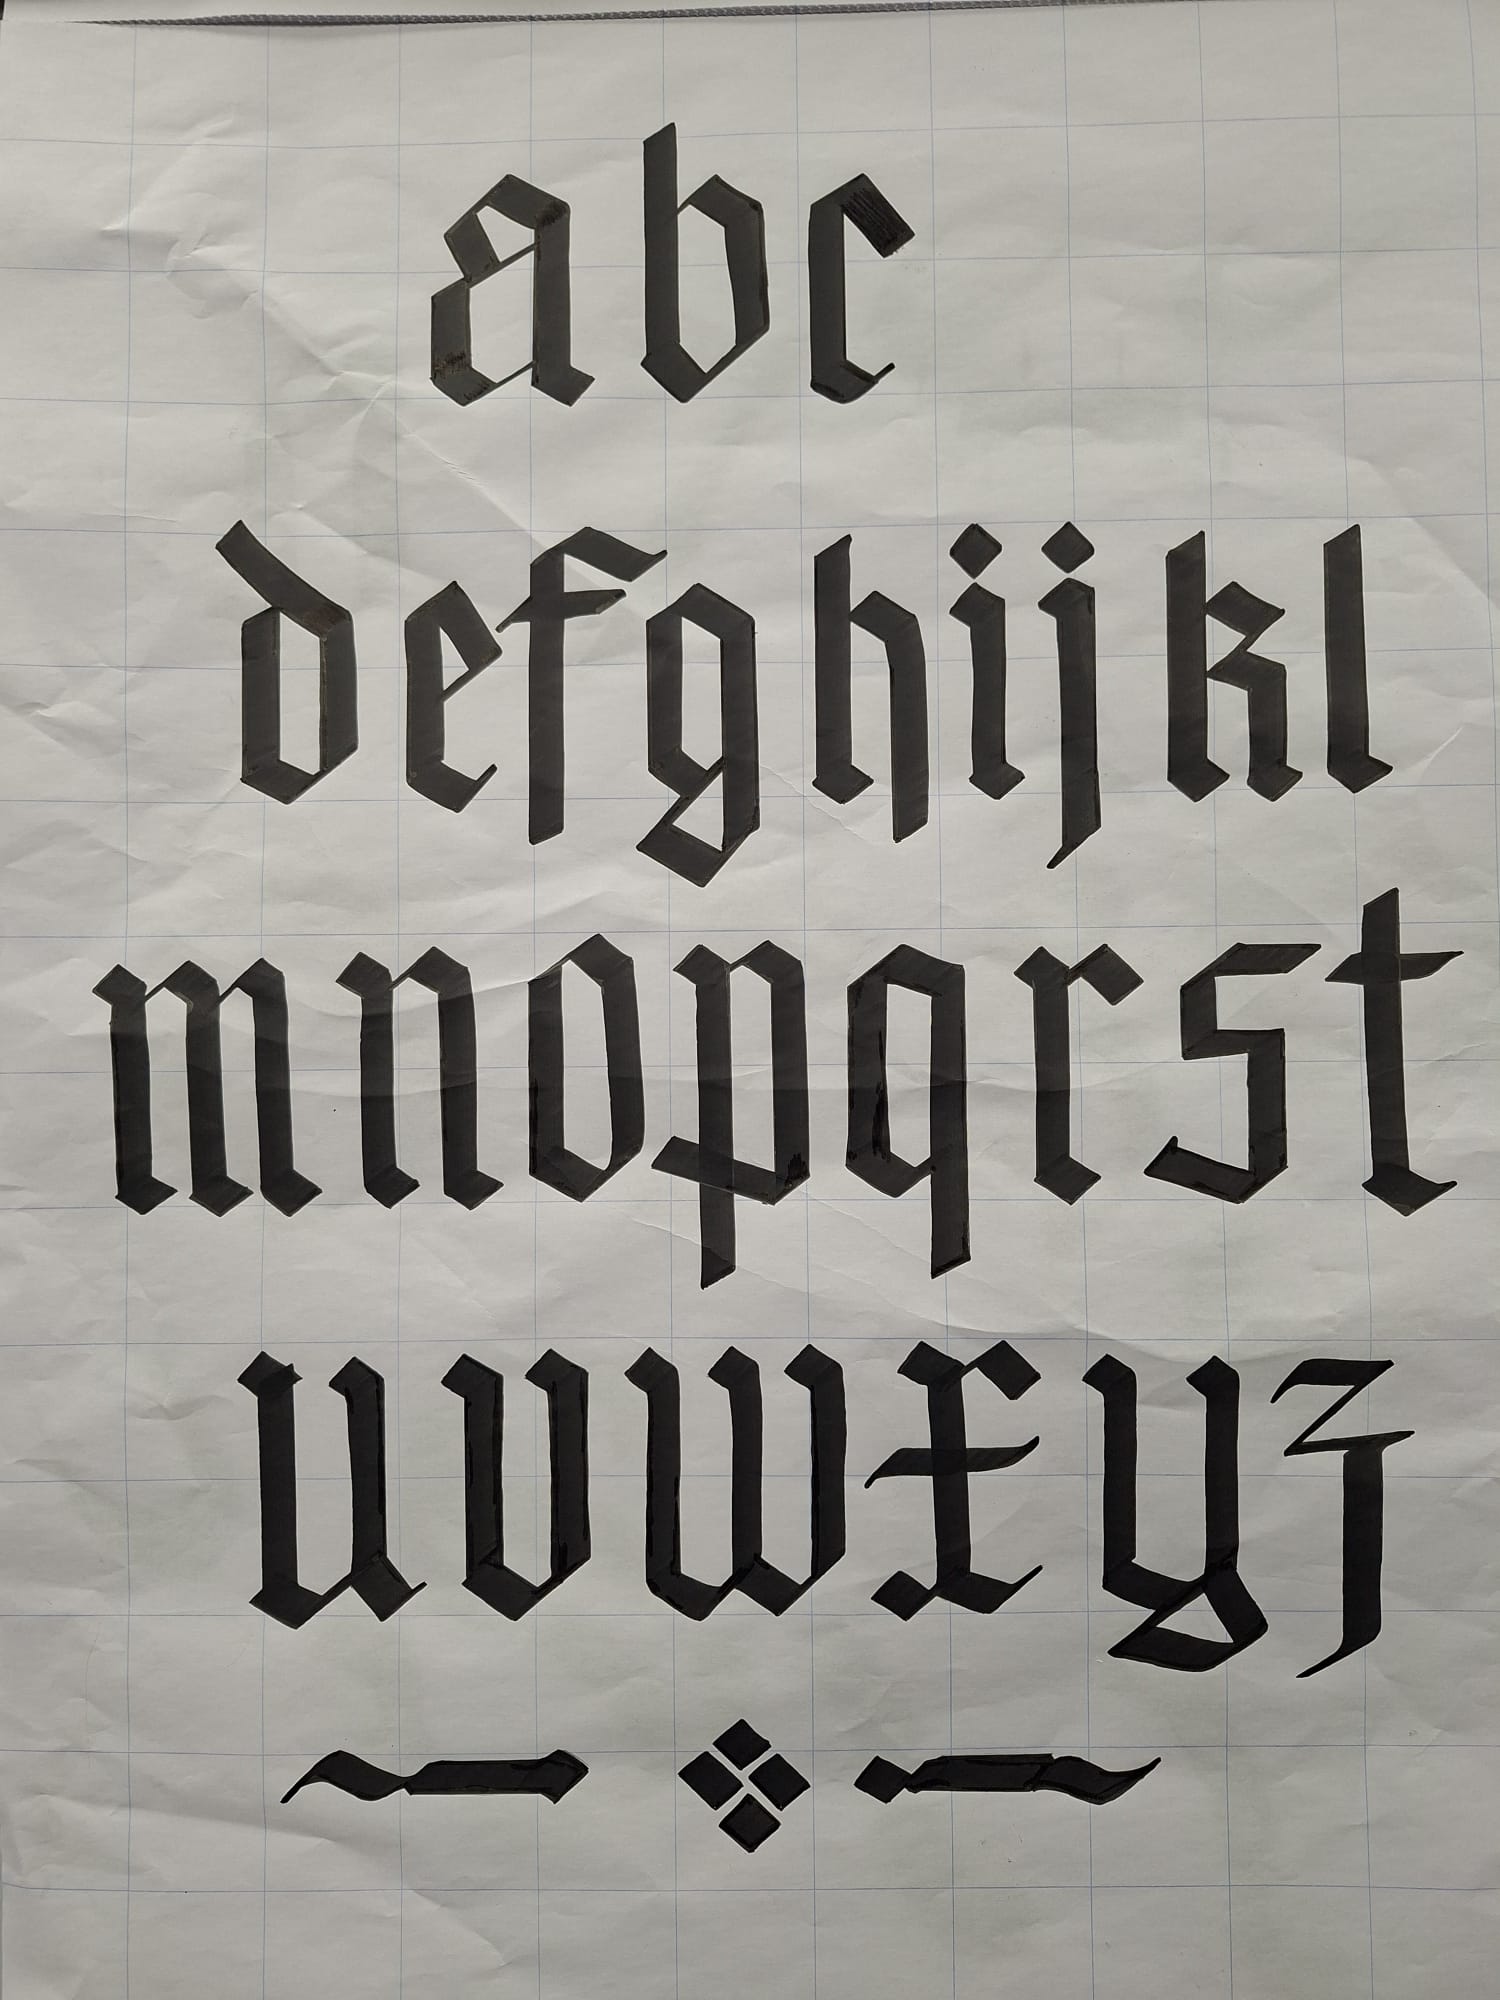 abc
defghijkl
mnopqrst
uvwxyz